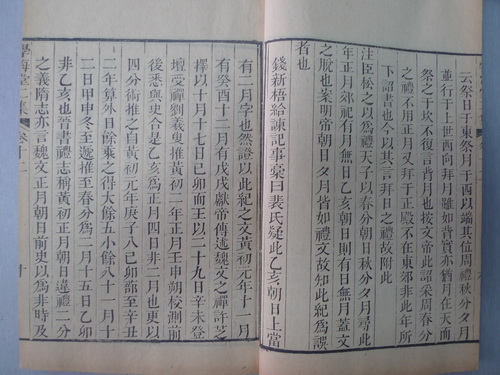 云祭日于東祭月于西以端其位周禮秋分夕月
並行于上世西向拜月雖如背實亦猶月在天而
祭之于坎不復言背月也按文帝此詔采周春分
之禮不用正月又以拜于正殿不在東郊非此年所
下詔書也今以其言拜日之禮故附此
注臣松之以爲禮天子以春分朝日秋分夕月尋此
年正月郊祀有月無日乙亥朝日則有日無月蓋文
之脫也案明帝朝日夕月皆如禮文故知此紀爲誤
者也
錢新梧給諫記事稾曰裴氏疑此乙亥朝日上當
有二月字也然證以此紀之文黃初元年十一月
有癸酉十二月有戊戌獻帝傳述魏文之禪許芝
擇以十月十七日己卯而王以二十九日辛未登
壇受禪劉羲叟推黃初二年正月壬申朔校測前
後悉與史合是乙亥爲正月四日非二月也更以
四分術推之自黃初元年庚子八己卯至辛丑
二年算外日餘乘之得大餘五小餘八十一月十
二日甲申冬至遞推至春分爲二月十五日乙卯
非乙亥也晉書禮志稱黃初正月朝日違禮二分
之義隋志亦言魏文正月朝日前史以爲非時及
學海堂二集 卷十二 十